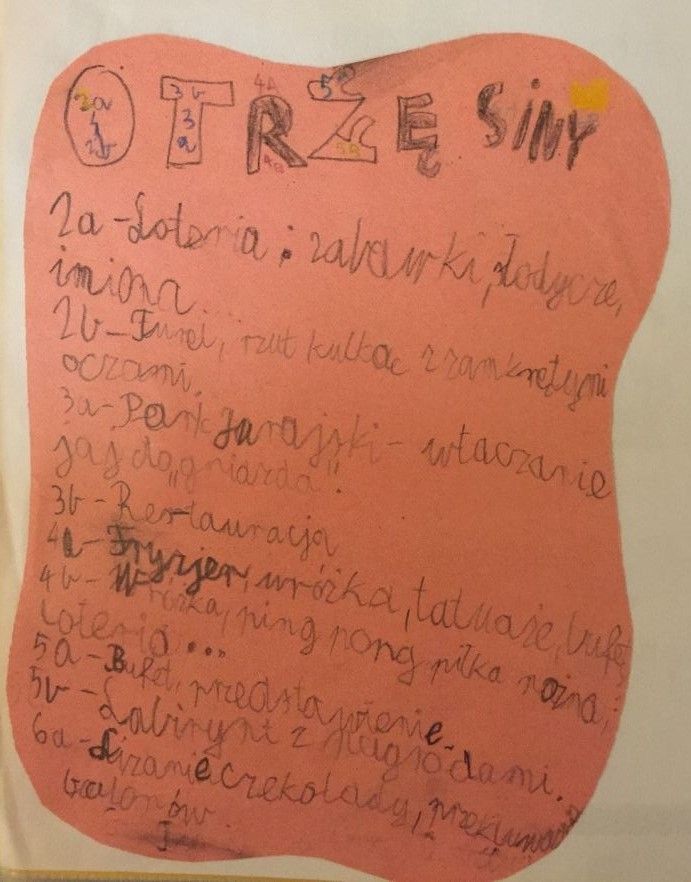 OTRZĘSINY
2a 3b 4A 5A
i 3
2b a 4B 5B
2a - Loteria: zabawki, słodycze,
imiona
2b - Tunel, rzut kulkac z zamkniętymi
oczami.
3a - Park Jurajski - wtaczanie
jaj do "gniazda".
3b - Restauracja
4a - Fryzjer, wróżka, tatuaże, bufet
4b - Wróżka, ping pong piłka nożna,
loteria...
5a - Bufet, przedstawienie.
5b - Labirynt z nagrodami.
6a - Lizanie czekolady, przekłuwanie
balonów